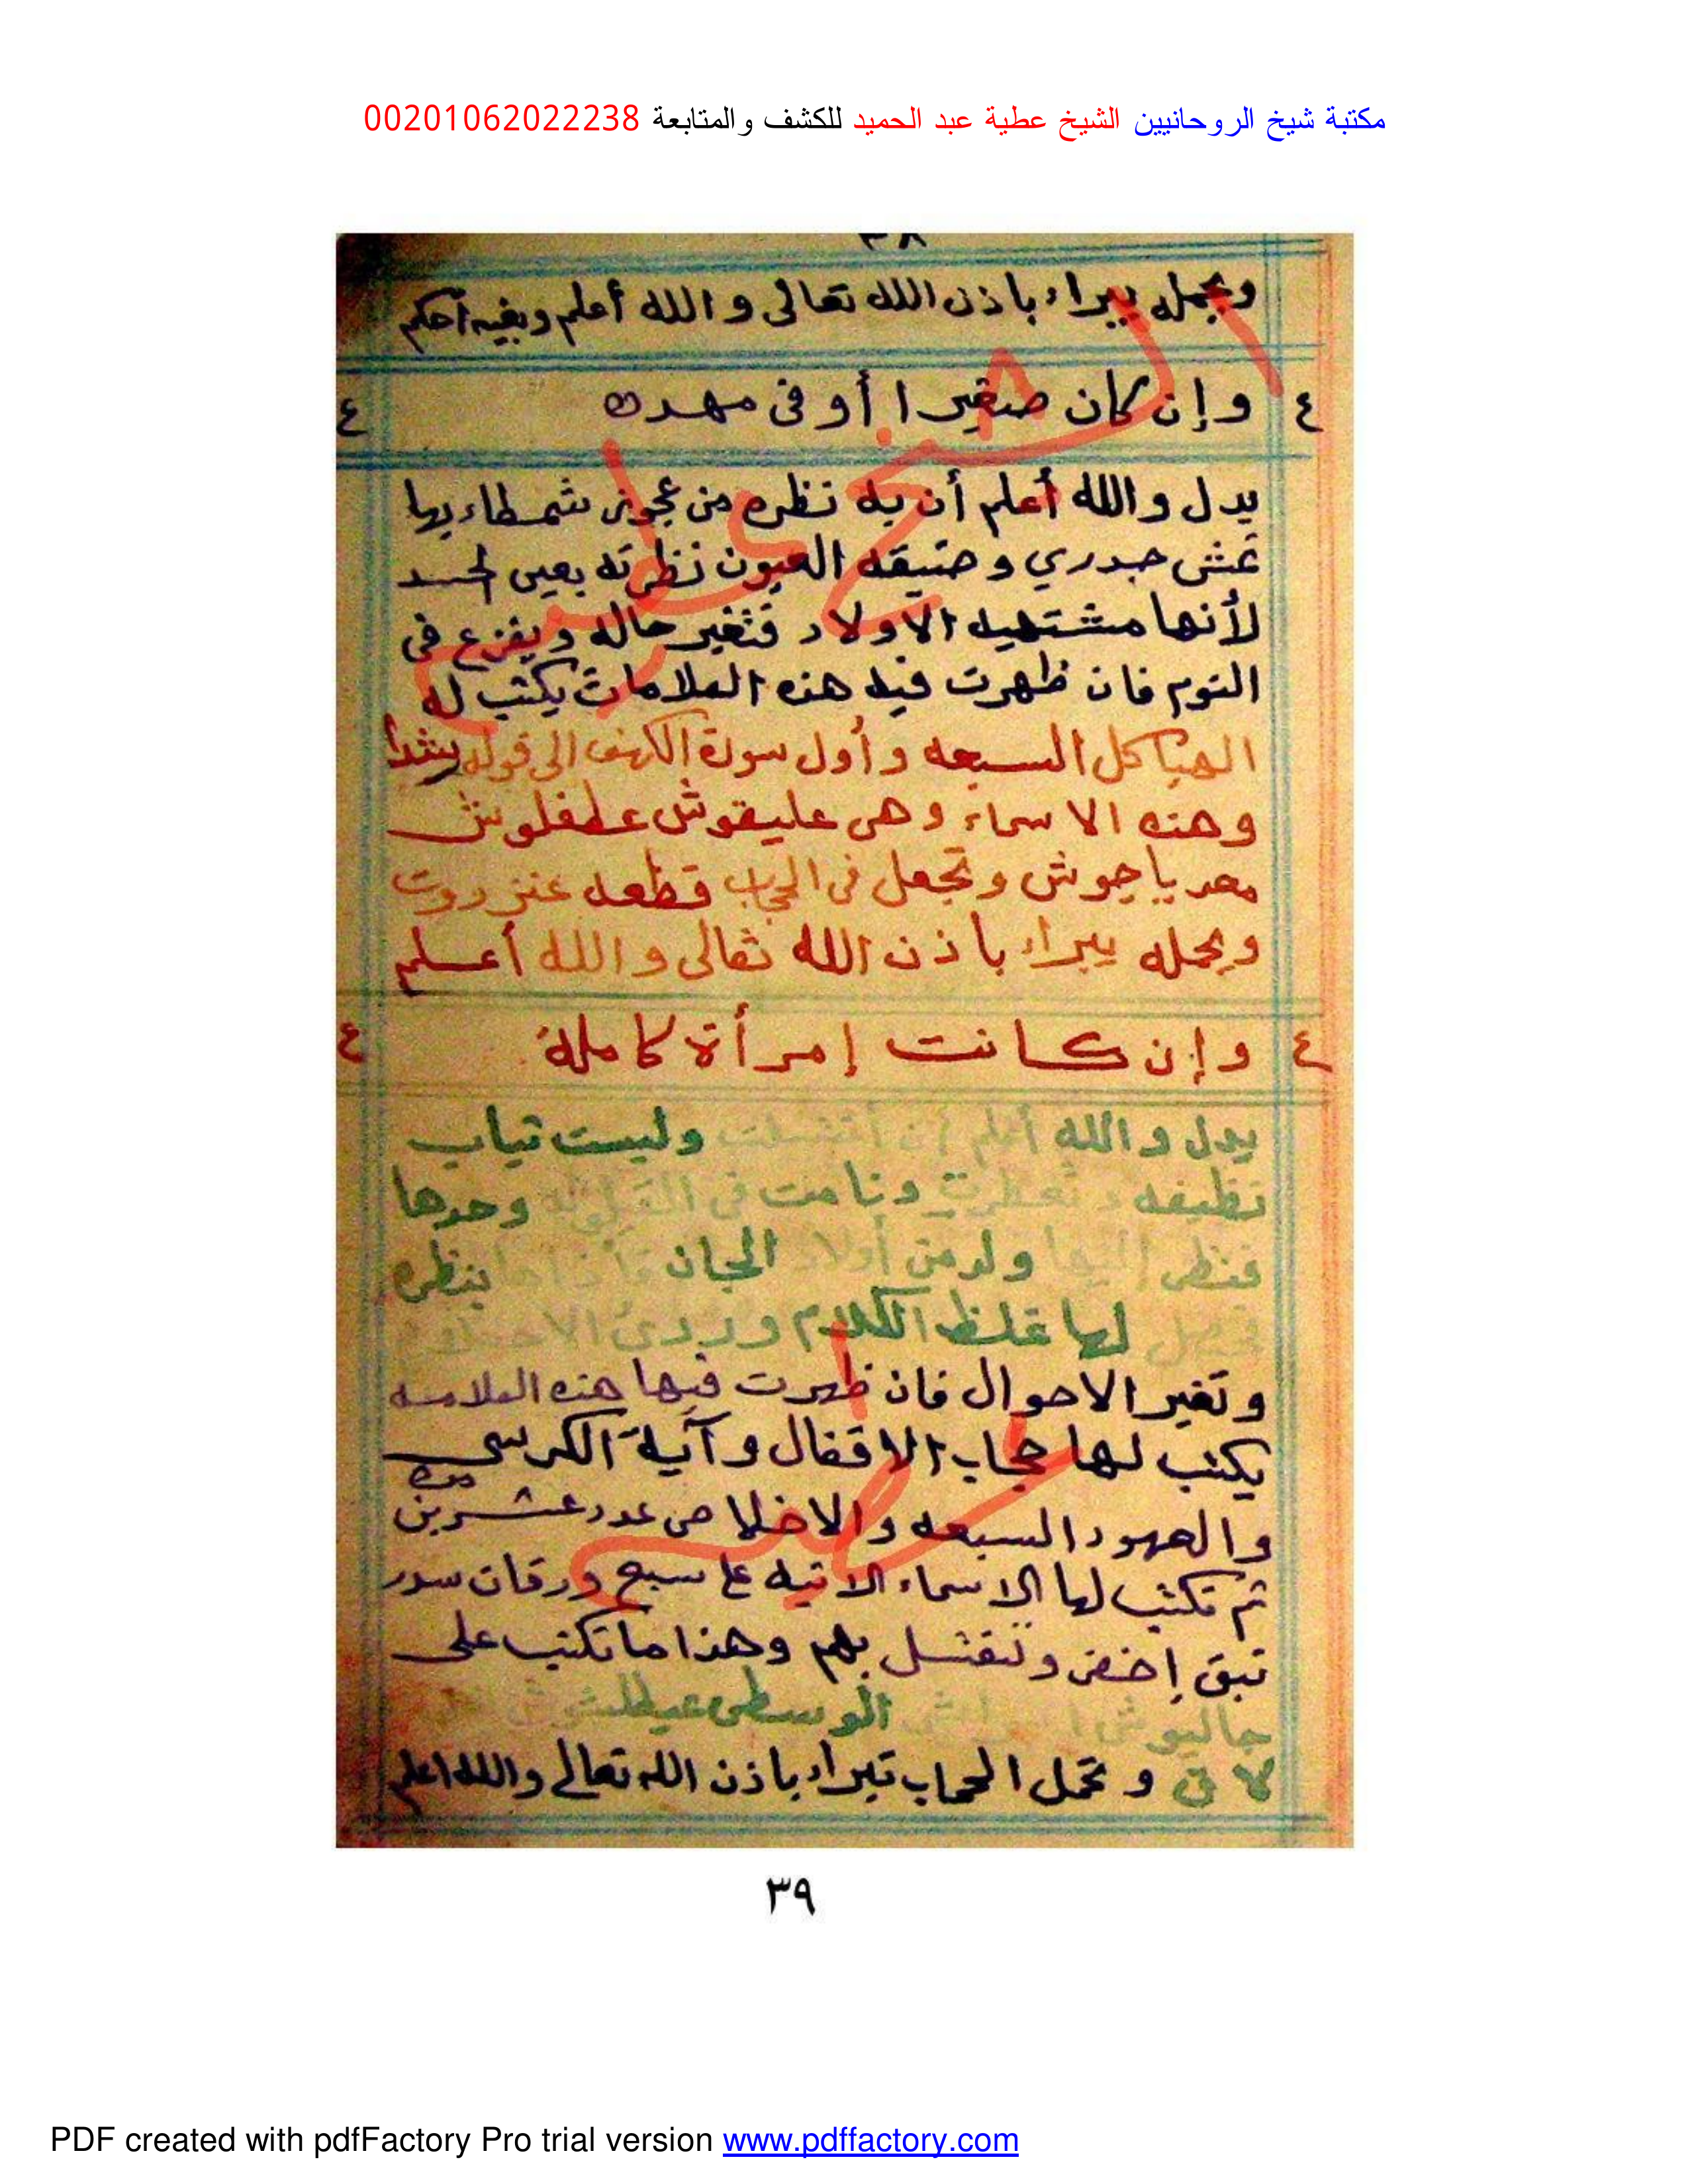 مكتبة شيخ الروحانيين الشيخ عطية عبد الحميد للكشف والمتابعة 00201062022238
٣٨
ويحمله يبراء باذن الله تعالى والله أعلم وبغيبه أحكم
٤ وإن كان صغيرا أو فى مهده ٤
يدل والله أعلم أن به نظره من عجوز شمطاء بها
نمش جدري وضيقه العيون نظرته بعين الحسد
لأنها مشتهيه الاولاد فتغير حاله ويفزع فى
النوم فان ظهرت فيه هذه العلامات يكتب له
الهياكل السبعه وأول سورة الكهف الى قوله رشدا
وهذه الاسماء وهى عليقوش عطفلوش
معد ياجوش وتجعل فى الحجاب قطعه عنزروت
ويحمله يبراء باذن الله تعالى والله أعلم
٤ وإن كانت إمرأة كامله ٤
يدل والله أعلم أن أغتسلت ولبست تياب
نظيفه و تعطرت ونامت فى القيلوله وحدها
فنظر اليها ولد من أولاد الجان فأذاها بنظره
فحصل لها غلظ الكلام وردئ الاخلاق
وتغير الاحوال فان ظهرت فيها هذه العلامه
يكتب لها حجاب الاقفال وآية الكرسى
والعهود السبعه والاخلاص عدد عشرين مره
تم تكتب لها الاسماء الاتيه على سبع ورقات سدر
نبق إخضر وتغتسل بهم وهذا ما تكتب على
جاليوش الوسطى
وتحمل الحجاب تبراء باذن الله تعالى والله اعلم
٣٩
PDF created with pdfFactory Pro trial version www.pdffactory.com